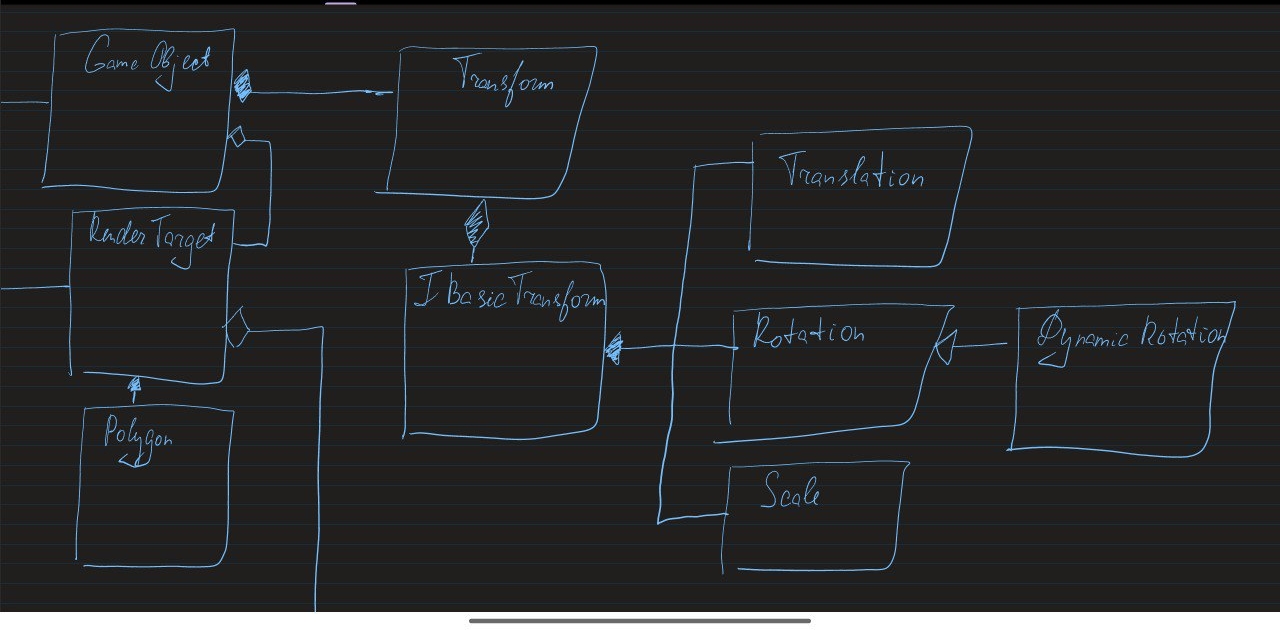 Game Object
Transform
Translation
Render Target
I Basic Transform
Rotation
Dynamic Rotation
Polygon
Scale